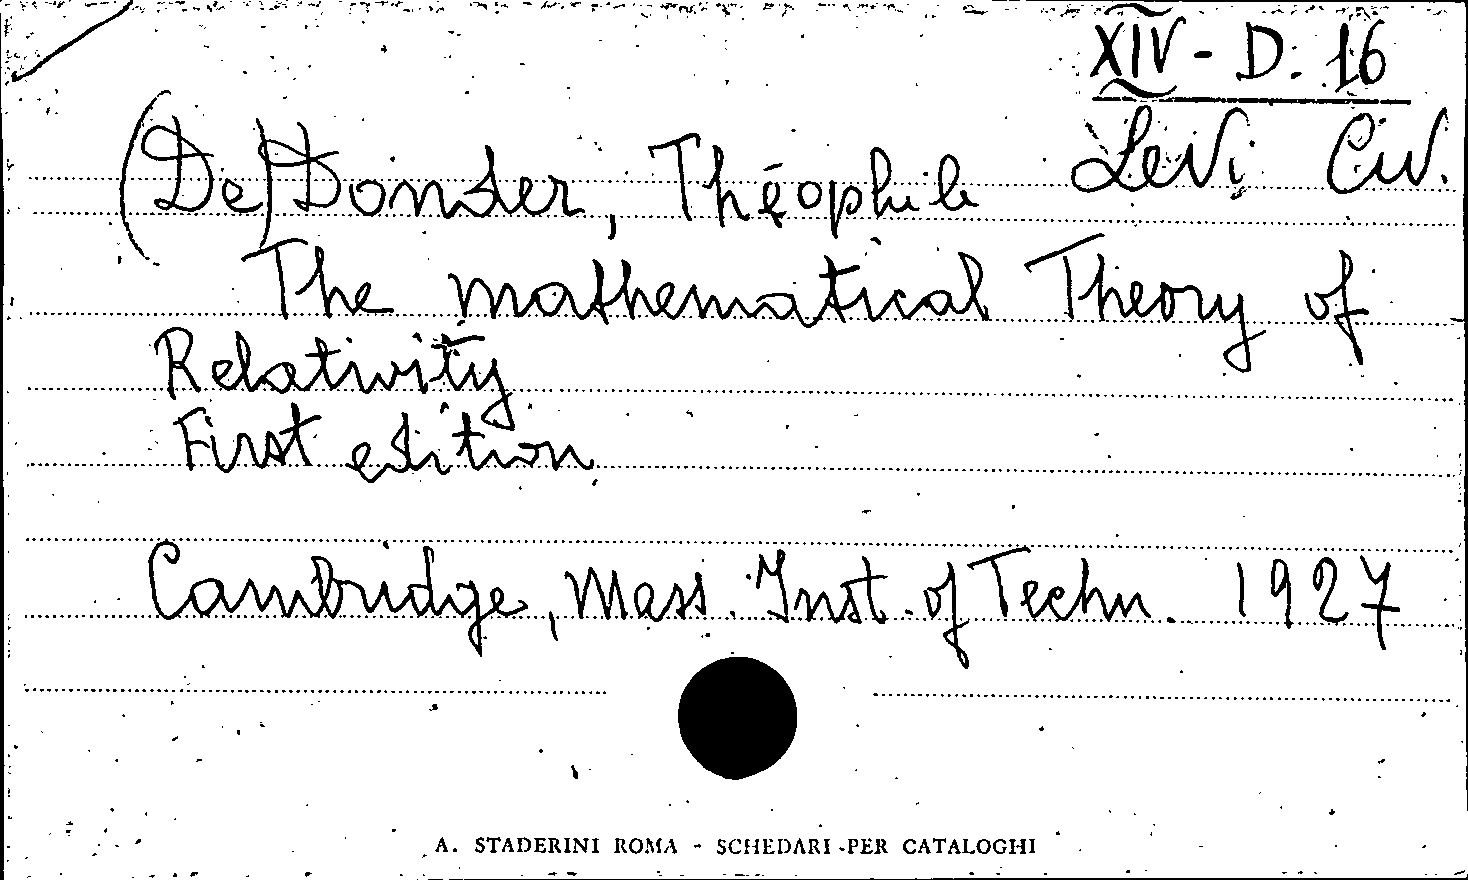 XIV - D. 16
(De) Donder, Théophile Levi Civ.
The mathematical Theory of
Relativity
First edition
Cambridge, Mass. Inst. of Techn. 1927
A. STADERINI ROMA - SCHEDARI PER CATALOGHI